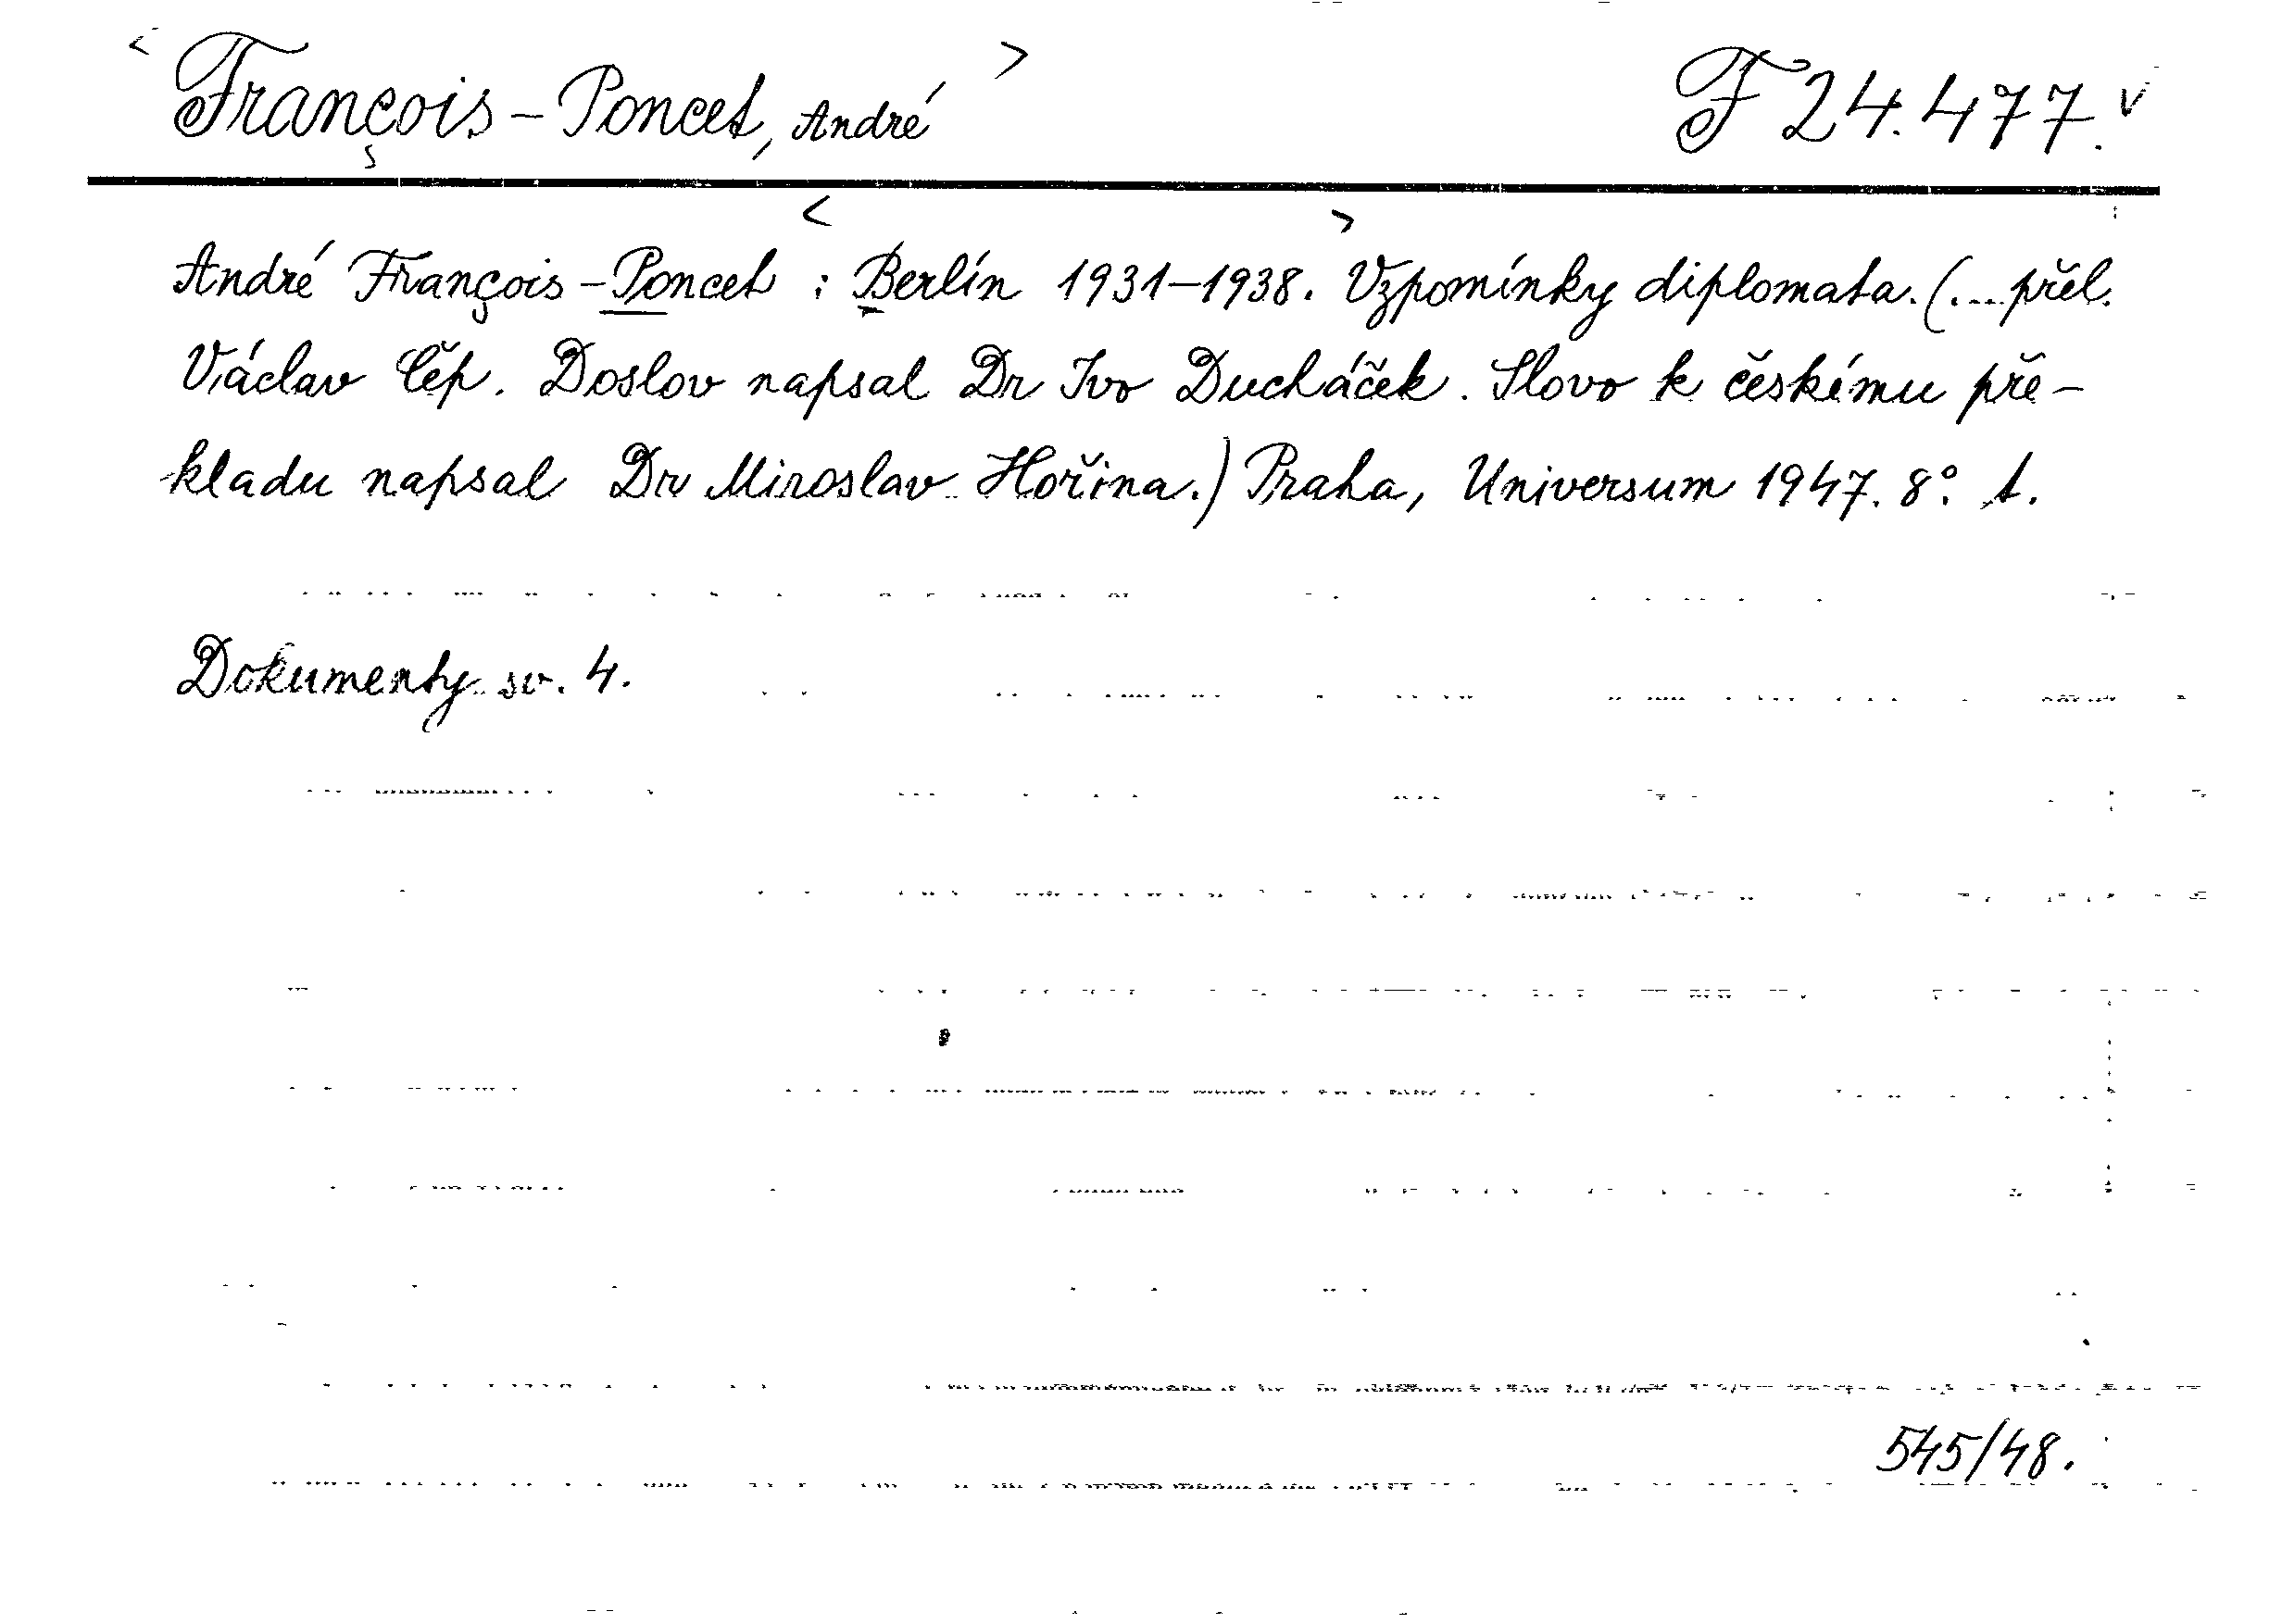 < François-Poncet, André > F 24.477. v
< >
André François-Poncet : Berlín 1931-1938. Vzpomínky diplomata. (... přel.
Václav Čép. Doslov napsal Dr Ivo Ducháček. Slovo k českému pře-
kladu napsal Dr Miroslav Hořina.) Praha, Universum 1947. 8°. t.
Dokumenty sv. 4.
545/48.